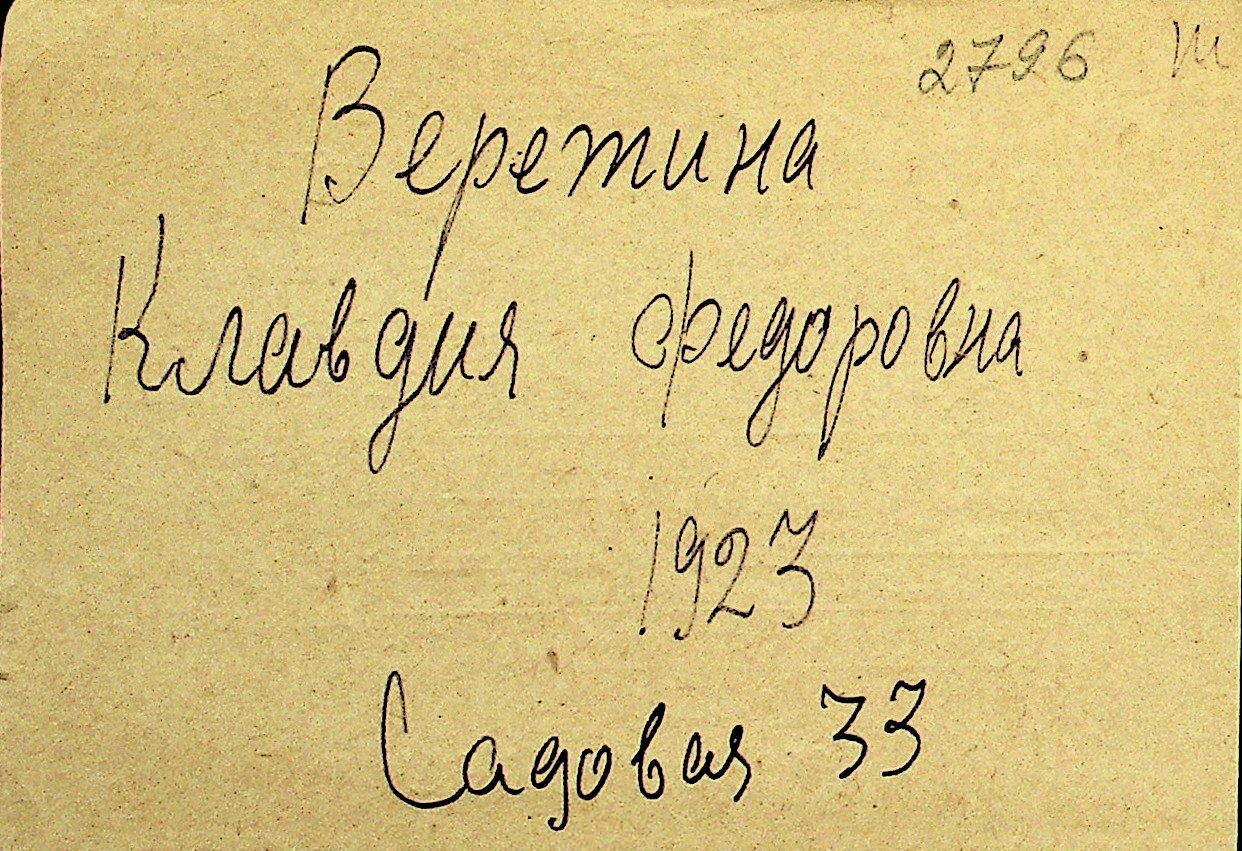 2796 Ш
Веретина
Клавдия Федоровна
1923
Садовая 33